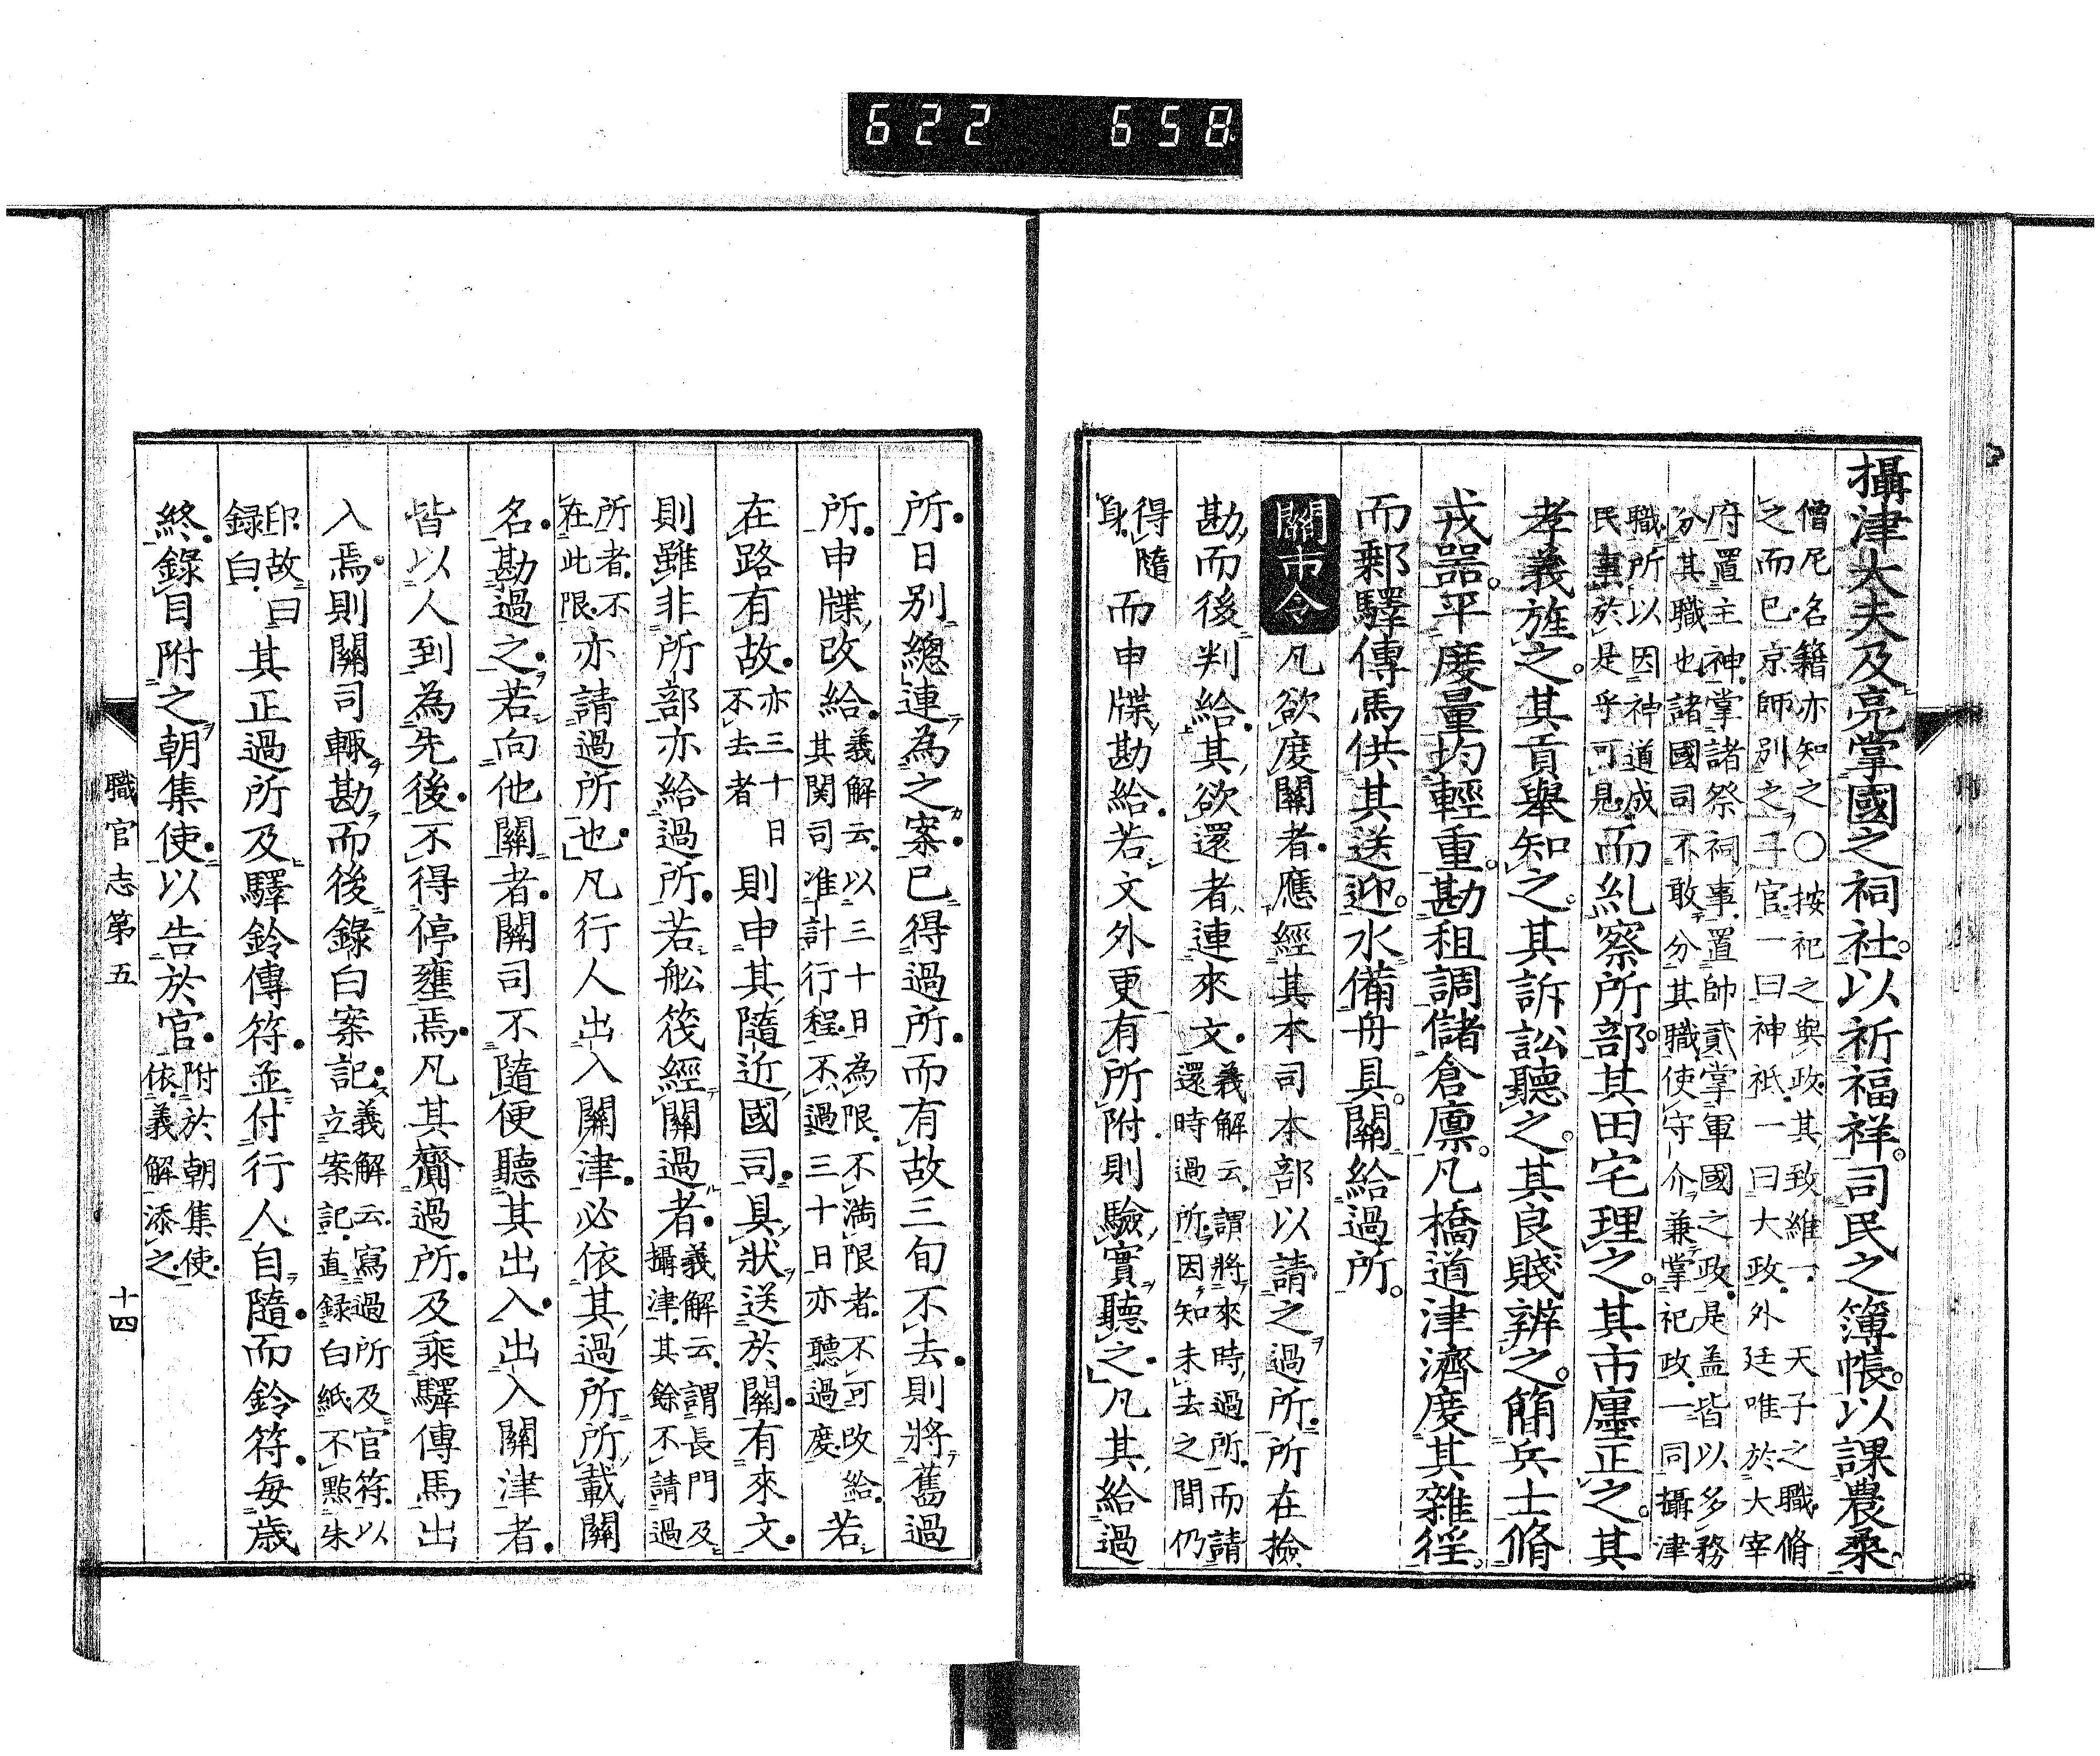 622 658
攝津大夫及亮掌國之祠社。以祈福祥。司民之簿帳。以課農桑。
僧尼名籍亦知之○按祀之與政其致維一天子之職脩
之而已京師別之二官一曰神祇一曰大政外廷唯於大宰
府置主神掌諸祭祠事置帥貳掌軍國之政是盖皆以多務
分其職也諸國司不敢分其職使守介兼掌祀政一同攝津
職所以因神道成
民事於是乎可見
而糺察所部。其田宅理之。其市廛正之。其
孝義旌之。其貢舉知之。其訴訟聽之。其良賤辨之。簡兵士脩
戎器。平度量均輕重。勘租調儲倉廩。凡橋道津濟度其雜徭。
而郵驛傳馬供其送迎。水備舟具。關給過所。
關市令 凡欲度關者應經其本司本部以請之過所所在撿
勘而後判給其欲還者連來文
義解云謂將來時過所而請
還時過所因知未去之間仍
得隨
身
而申牒勘給若文外更有所附則驗實聽之凡其給過
所日別總連為之案已得過所而有故三旬不去則將舊過
所申牒改給
義解云以三十日為限不滿限者不可改給
其関司准計行程不過三十日亦聽過度
若
在路有故
亦三十日
不去者
則申其隨近國司具狀送於關有來文
則雖非所部亦給過所若舩筏經關過者
義解云謂長門及
攝津其餘不請過
所者不
在此限
亦請過所也凡行人出入關津必依其過所所載關
名勘過之若向他關者關司不隨便聽其出入出入關津者
皆以人到為先後不得停壅焉凡其齎過所及乘驛傳馬出
入焉則關司輙勘而後錄白案記
義解云寫過所及官符以
立案記直録白紙不點朱
印故曰
録白
其正過所及驛鈴傳符並付行人自隨而鈴符每歲
終錄目附之朝集使以告於官
附於朝集使
依義解添之
職官志第五 十四